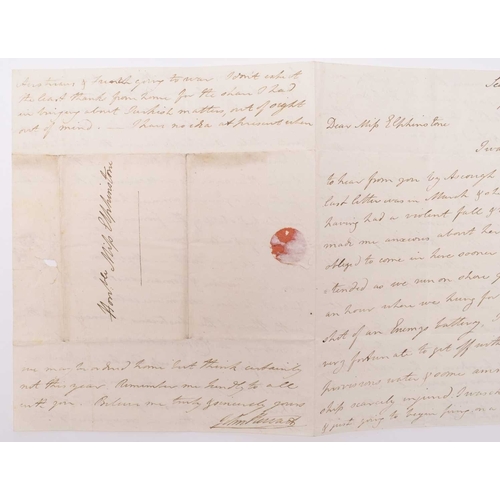 Austrians & French going to war. I don't
the least thank from home for the share I had
in bringing about Turkish matters, out of sight
out of mind. — I have no idea at present when
Honble Miss Elphinston
we may be ordered home but think certainly
not this year. Remember me kindly to all
with you. Believe me truly & sincerely yours
Dear Miss Elphinstone
I was
to hear from you by Ascough
last letter was in March &
having had a violent fall &
made me anxious about her
obliged to come in here sooner
tended as we run on shore
an hour where we hung for
shot of an Enemys battery.
very fortunate to get off with
provisions water & some
ship scarcely injured I was
& just going to begin firing on a